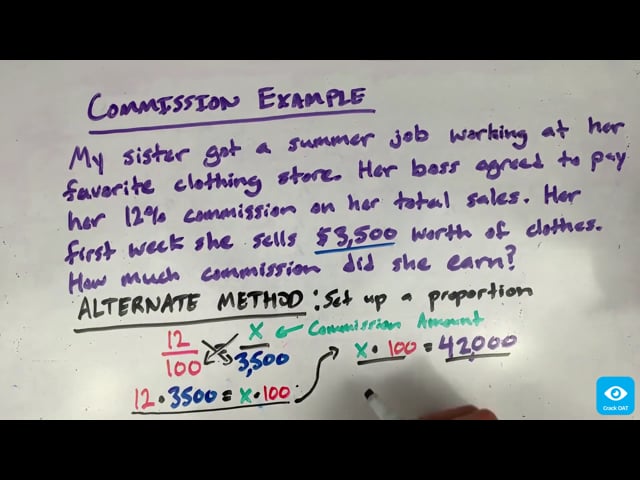 COMMISSION EXAMPLE
My sister got a summer job working at her
favorite clothing store. Her boss agreed to pay
her 12% commission on her total sales. Her
first week she sells $3,500 worth of clothes.
How much commission did she earn?
ALTERNATE METHOD: Set up a proportion
12/100 x/3,500 ← Commission Amount
x · 100 = 42,000
12 · 3500 = x · 100
Crack OAT